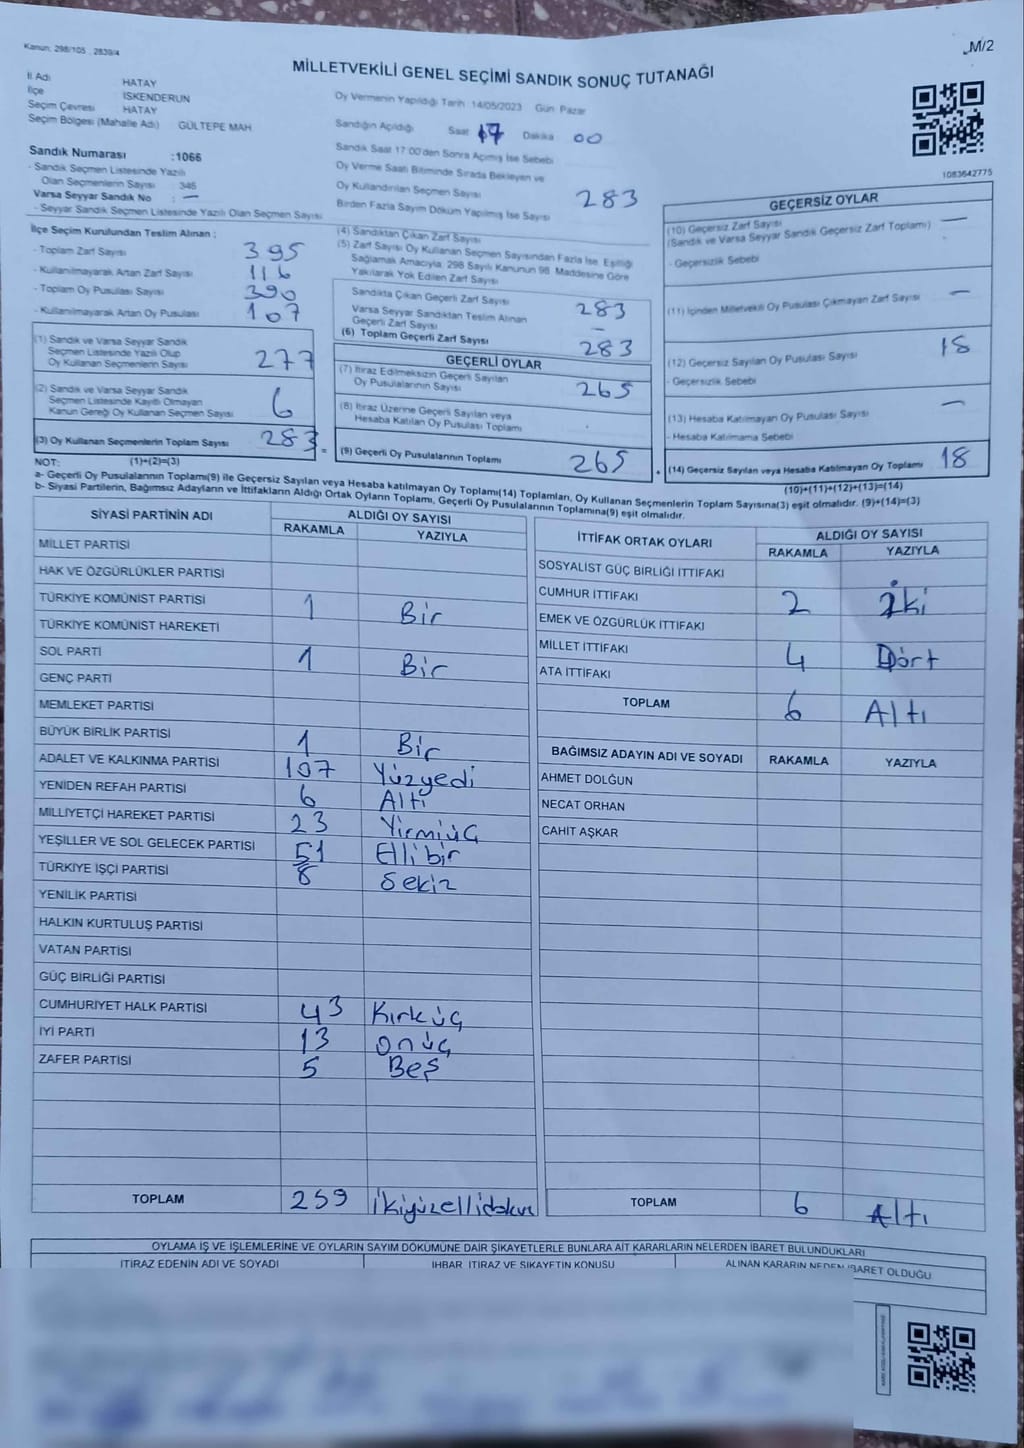 Kanun: 298/105 , 2839/4
M/2
MİLLETVEKİLİ GENEL SEÇİMİ SANDIK SONUÇ TUTANAĞI
İl Adı HATAY
İlçe İSKENDERUN
Seçim Çevresi HATAY
Seçim Bölgesi (Mahalle Adı) GÜLTEPE MAH
Sandık Numarası :1066
- Sandık Seçmen Listesinde Yazılı
Olan Seçmenlerin Sayısı : 345
Varsa Seyyar Sandık No : —
- Seyyar Sandık Seçmen Listesinde Yazılı Olan Seçmen Sayısı
Oy Vermenin Yapıldığı Tarih 14/05/2023 Gün Pazar
Sandığın Açıldığı Saat 17 Dakika 00
Sandık Saat 17:00'den Sonra Açımış İse Sebebi
Oy Verme Saati Bitiminde Sırada Bekleyen ve
Oy Kullandırılan Seçmen Sayısı 283
Birden Fazla Sayım Döküm Yapılmış İse Sayısı
1083642775
İlçe Seçim Kurulundan Teslim Alınan :
- Toplam Zarf Sayısı 395
- Kullanılmayarak Artan Zarf Sayısı 116
- Toplam Oy Pusulası Sayısı 390
- Kullanılmayarak Artan Oy Pusulası 107
(1) Sandık ve Varsa Seyyar Sandık
Seçmen Listesinde Yazılı Olup
Oy Kullanan Seçmenlerin Sayısı 277
(2) Sandık ve Varsa Seyyar Sandık
Seçmen Listesinde Kayıtlı Olmayan
Kanun Gereği Oy Kullanan Seçmen Sayısı 6
(3) Oy Kullanan Seçmenlerin Toplam Sayısı 283 =
(4) Sandıktan Çıkan Zarf Sayısı
(5) Zarf Sayısı Oy Kullanan Seçmen Sayısından Fazla İse, Eşitliği
Sağlamak Amacıyla, 298 Sayılı Kanunun 98. Maddesine Göre
Yakılarak Yok Edilen Zarf Sayısı
Sandıkta Çıkan Geçerli Zarf Sayısı 283
Varsa Seyyar Sandıktan Teslim Alınan
Geçerli Zarf Sayısı –
(6) Toplam Geçerli Zarf Sayısı 283
GEÇERLİ OYLAR
(7) İtiraz Edilmeksizin Geçerli Sayılan
Oy Pusulalarının Sayısı 265
(8) İtiraz Üzerine Geçerli Sayılan veya
Hesaba Katılan Oy Pusulası Toplamı
(9) Geçerli Oy Pusulalarının Toplamı 265 +
GEÇERSİZ OYLAR
(10) Geçersiz Zarf Sayısı —
(Sandık ve Varsa Seyyar Sandık Geçersiz Zarf Toplamı)
- Geçersizlik Sebebi
(11) İçinden Milletvekili Oy Pusulası Çıkmayan Zarf Sayısı –
(12) Geçersiz Sayılan Oy Pusulası Sayısı 18
- Geçersizlik Sebebi
(13) Hesaba Katılmayan Oy Pusulası Sayısı —
- Hesaba Katılmama Sebebi
(14) Geçersiz Sayılan veya Hesaba Katılmayan Oy Toplamı 18
NOT: (1)+(2)=(3)
(10)+(11)+(12)+(13)=(14)
a- Geçerli Oy Pusulalarının Toplamı(9) ile Geçersiz Sayılan veya Hesaba katılmayan Oy Toplamı(14) Toplamları, Oy Kullanan Seçmenlerin Toplam Sayısına(3) eşit olmalıdır. (9)+(14)=(3)
b- Siyasi Partilerin, Bağımsız Adayların ve İttifakların Aldığı Ortak Oyların Toplamı, Geçerli Oy Pusulalarının Toplamına(9) eşit olmalıdır.
SİYASİ PARTİNİN ADI ALDIĞI OY SAYISI
RAKAMLA YAZIYLA
MİLLET PARTİSİ
HAK VE ÖZGÜRLÜKLER PARTİSİ
TÜRKİYE KOMÜNİST PARTİSİ 1 Bir
TÜRKİYE KOMÜNİST HAREKETİ
SOL PARTİ 1 Bir
GENÇ PARTİ
MEMLEKET PARTİSİ
BÜYÜK BİRLİK PARTİSİ 1 Bir
ADALET VE KALKINMA PARTİSİ 107 Yüzyedi
YENİDEN REFAH PARTİSİ 6 Altı
MİLLİYETÇİ HAREKET PARTİSİ 23 Yirmiüç
YEŞİLLER VE SOL GELECEK PARTİSİ 51 Ellibir
TÜRKİYE İŞÇİ PARTİSİ 8 Sekiz
YENİLİK PARTİSİ
HALKIN KURTULUŞ PARTİSİ
VATAN PARTİSİ
GÜÇ BİRLİĞİ PARTİSİ
CUMHURİYET HALK PARTİSİ 43 Kırküç
İYİ PARTİ 13 onüç
ZAFER PARTİSİ 5 Beş
TOPLAM 259 İkiyüzellidokuz
İTTİFAK ORTAK OYLARI ALDIĞI OY SAYISI
RAKAMLA YAZIYLA
SOSYALİST GÜÇ BİRLİĞİ İTTİFAKI
CUMHUR İTTİFAKI 2 İki
EMEK VE ÖZGÜRLÜK İTTİFAKI
MİLLET İTTİFAKI 4 Dört
ATA İTTİFAKI
TOPLAM 6 Altı
BAĞIMSIZ ADAYIN ADI VE SOYADI RAKAMLA YAZIYLA
AHMET DOLĞUN
NECAT ORHAN
CAHİT AŞKAR
TOPLAM 6 Altı
OYLAMA İŞ VE İŞLEMLERİNE VE OYLARIN SAYIM DÖKÜMÜNE DAİR ŞİKAYETLERLE BUNLARA AİT KARARLARIN NELERDEN İBARET BULUNDUKLARI
İTİRAZ EDENİN ADI VE SOYADI İHBAR, İTİRAZ VE ŞİKAYETİN KONUSU ALINAN KARARIN NEDEN İBARET OLDUĞU